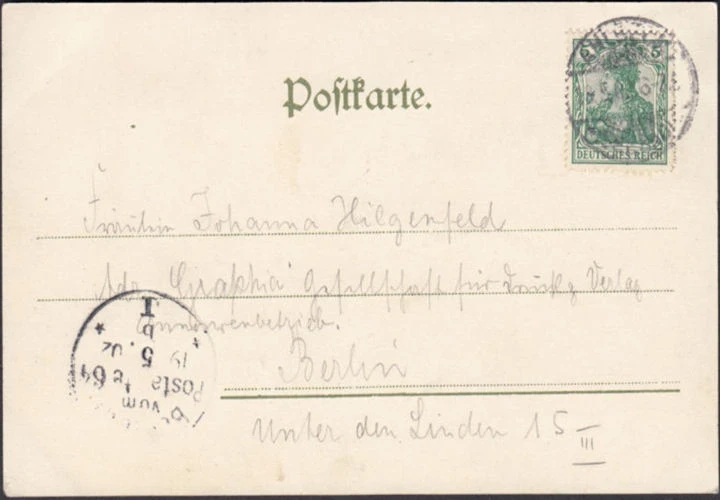 Postkarte.
5 5
DEUTSCHES REICH
Fräulein Johanna Hilgenfeld
Adr. "Graphia" Gesellschaft für Druck, Verlag
Annoncenbetrieb.
Berlin
Unter den Linden 15 III
Posta 64
vom
19 5.
b
I